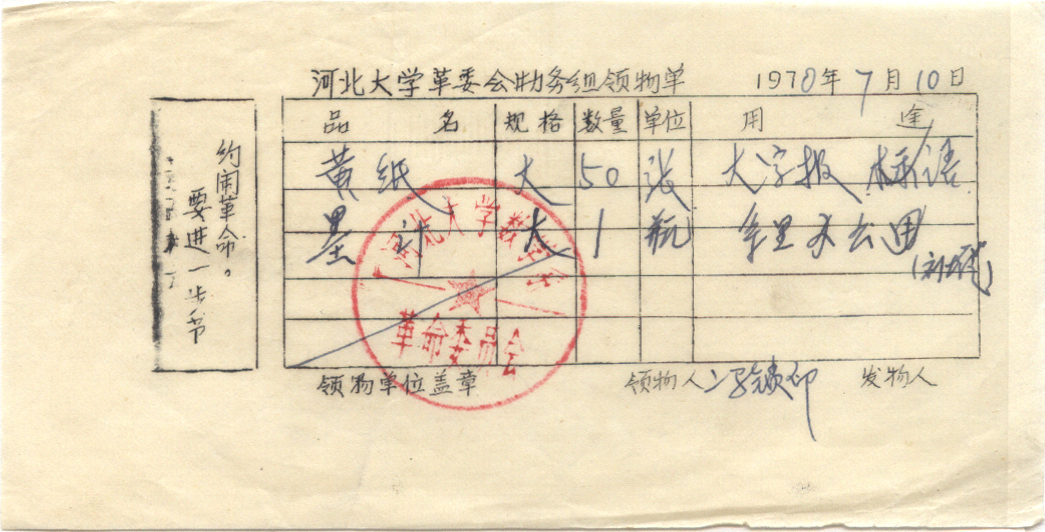 河北大学革委会务组领物单 1970年7月10日
品名 规格 数量 单位 用途
黄纸 大 50 张 大字报 标语
墨汁 大 1 瓶 系里办公用
领物单位盖章 领物人 冯 发物人
要进一步节
约闹革命。
河北大学数学系
革命委员会